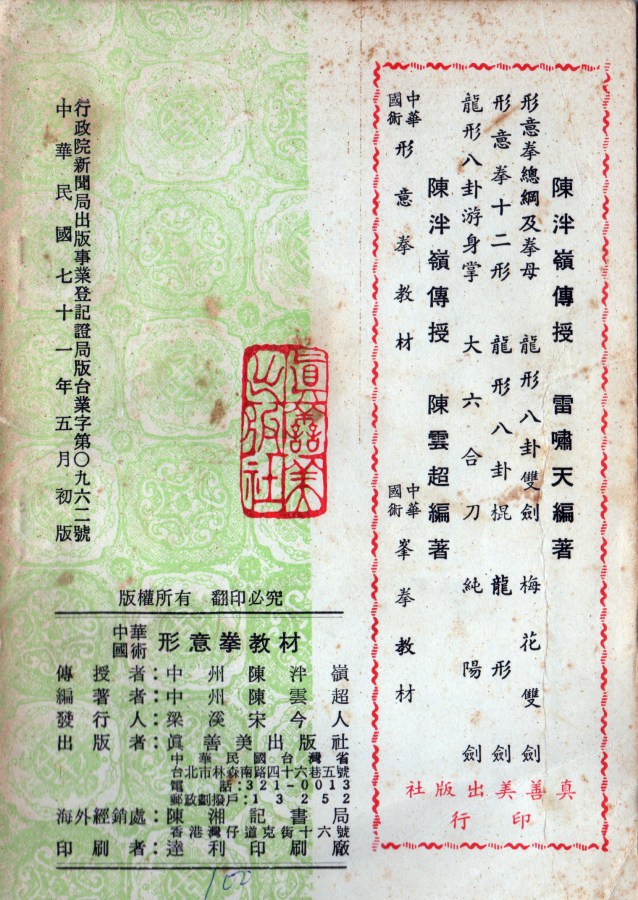 陳泮嶺傳授　雷嘯天編著
形意拳總綱及拳母　龍形八卦雙劍　梅花雙劍
形意拳十二形　龍形八卦棍　龍形劍
龍形八卦游身掌　大六合刀　純陽劍
陳泮嶺傳授　陳雲超編著
中華國術　形意拳教材　中華國術　峯拳教材
真善美出版社
印行
眞善美出版社
行政院新聞局出版事業登記證局版台業字第〇九六二號
中華民國七十一年五月初版
版權所有　翻印必究
中華國術　形意拳教材
傳授者：中州陳泮嶺
編著者：中州陳雲超
發行人：梁溪宋今人
出版者：眞善美出版社
中華民國台灣省
台北市林森南路四十六巷五號
電話：321-0013
郵政劃撥戶：13252
海外經銷處：陳湘記書局
香港灣仔道克街十六號
印刷者：達利印刷廠
100